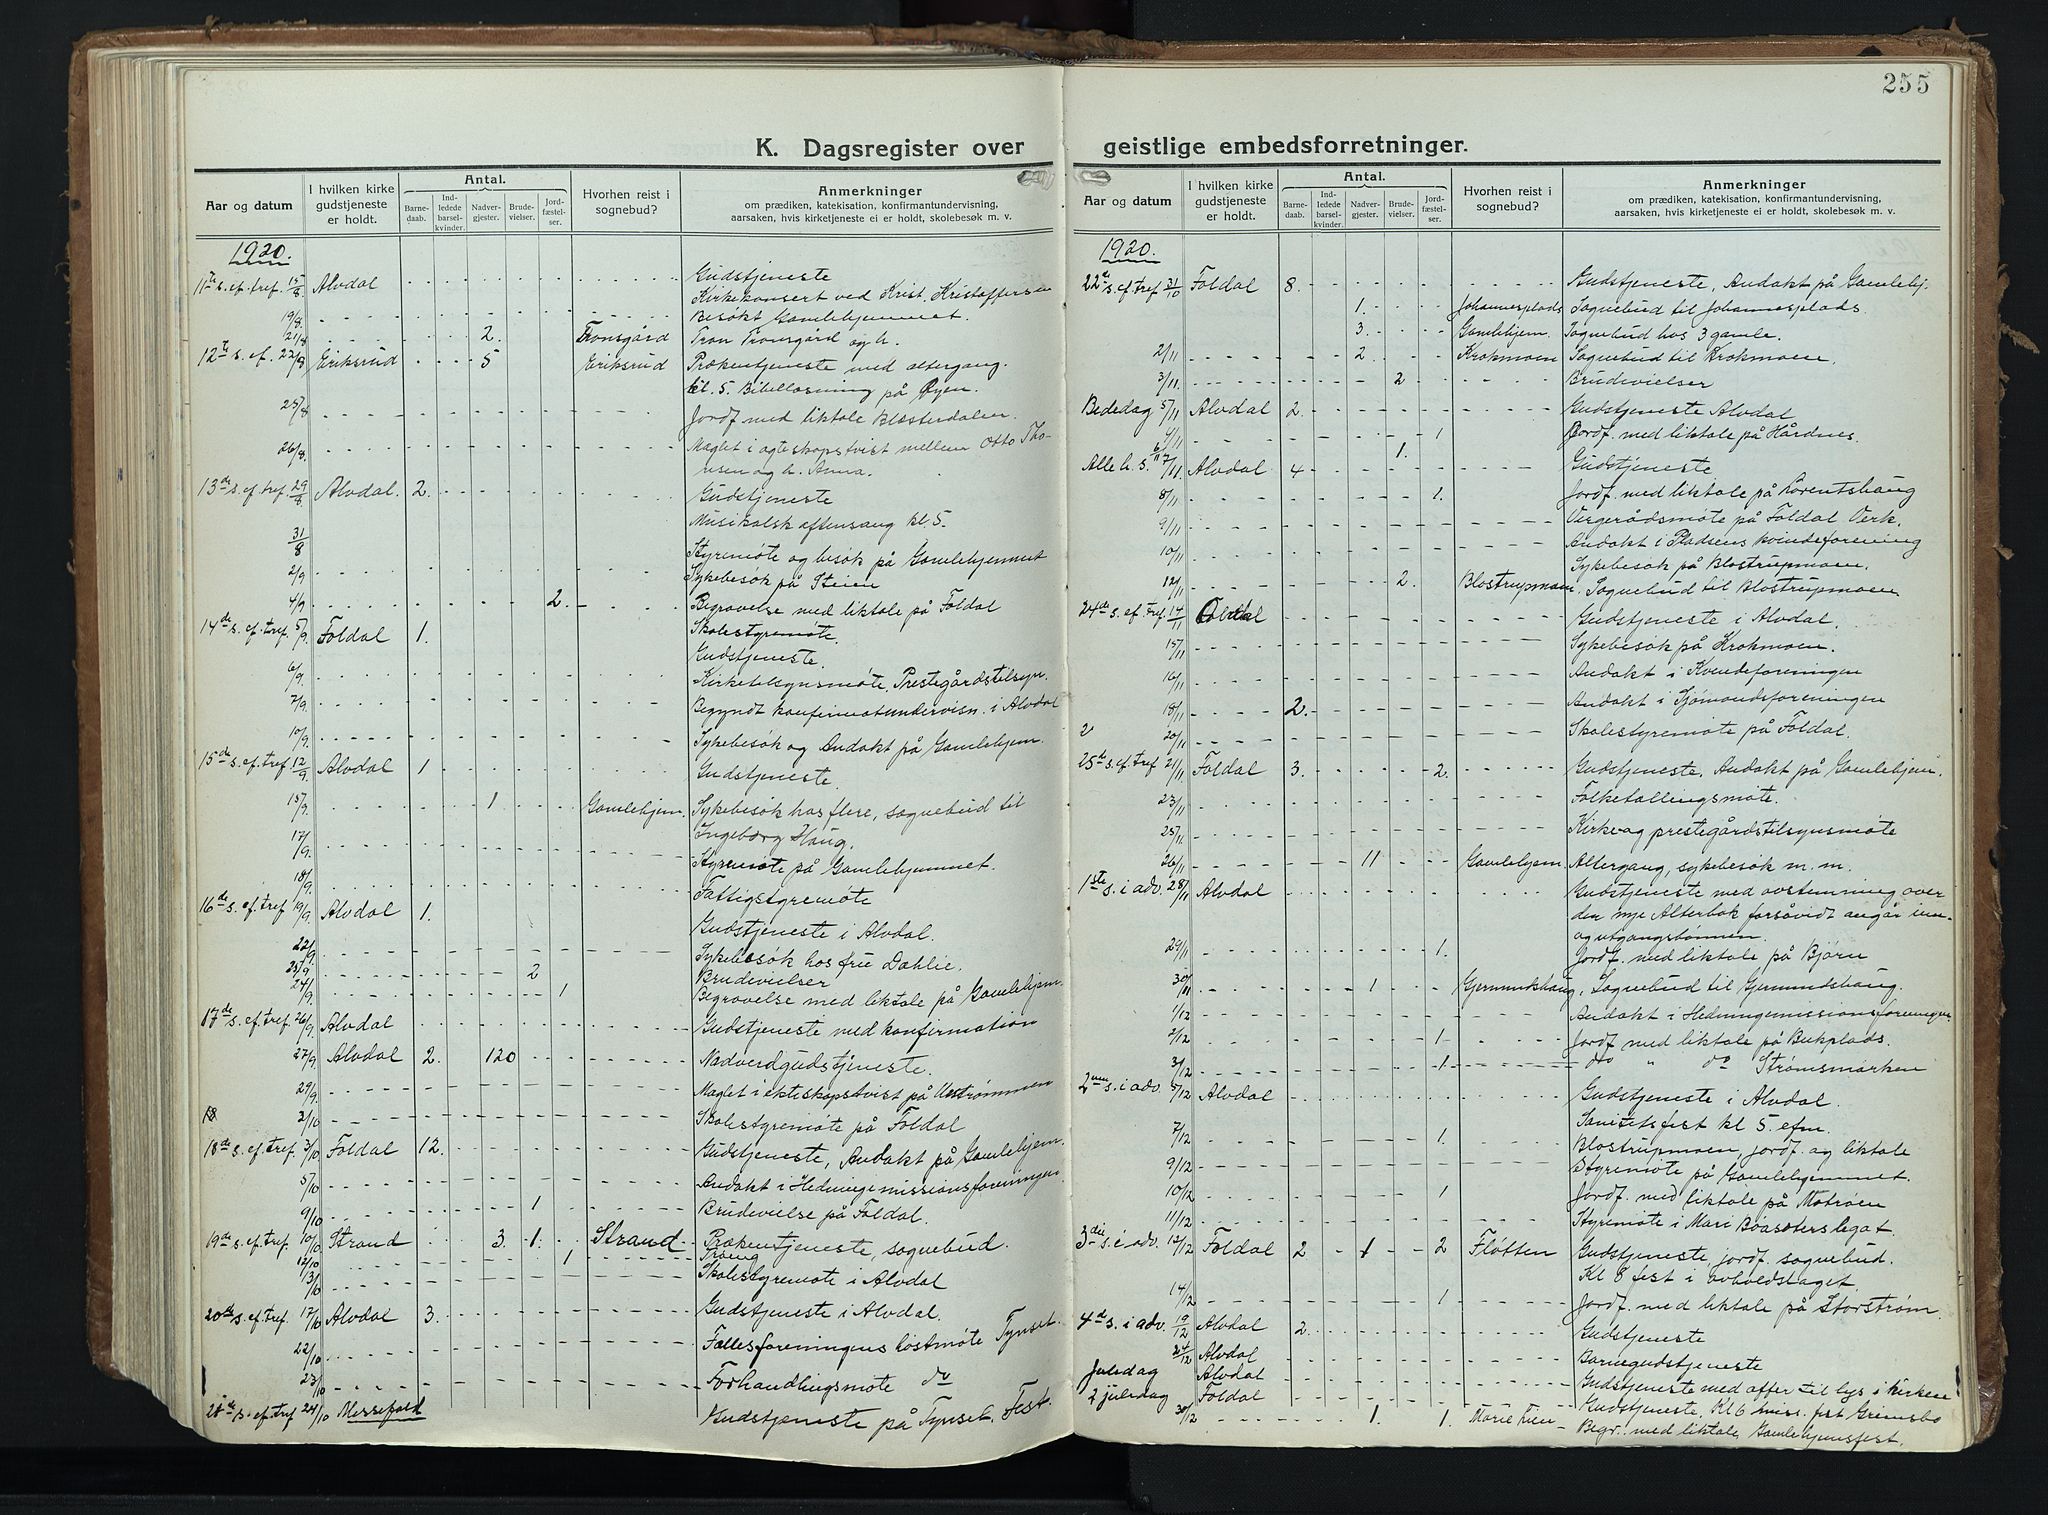 255
K. Dagsregister over geistlige embedsforretninger.
Aar og datum
I hvilken kirke gudstjeneste er holdt.
Antal.
Barne-daab.
Ind-ledede barsel-kvinder.
Nadver-gjester.
Brude-vielser.
Jord-fæstel-ser.
Hvorhen reist i sognebud?
Anmerkninger
om prædiken, katekisation, konfirmantundervisning,
aarsaken, hvis kirketjeneste ei er holdt, skolebesøk m. v.
1920.
11te s. ef. tref. 15/8 Alvdal Gudstjeneste
Kirkekonsert ved Krist. Kristoffersen
19/8. Besøkt Gamlehjemmet.
21/8 2. Tronsgård Tron Tronsgård og h.
12te s. ef. 22/8 Eriksrud 5 Eriksrud Prækentjeneste med altergang.
kl. 5. Bibellæsning på Øyen.
25/8 Jordf. med liktale
26/8. Mæglet i ægteskapstvist mellem Otto Tho-
nsen og h. Anna.
13de s. ef. tref. 29/8 Alvdal. 2. Gudstjeneste
Musikalsk aftensang kl. 5.
31/8 Styremøte og besøk på Gamlehjemmet
2/9 Sykebesøk på Steien
4/9 2. Begravelse med liktale på Foldal
Skolestyremøte.
14de s. ef. tref. 5/9. Foldal 1. Gudstjeneste.
6/9. Kirketilsynsmøte, Prestegårdstilsyn.
7/9. Begyndt konfirmatundervisn. i Alvdal
10/9. Sykebesøk og Andakt på Gamlehjem.
15de s. ef. tref. 12/9. Alvdal 1. Gudstjeneste.
15/9. 1 Gamlehjem. Sykebesøk hos flere, sognebud til
Ingeborg Haug.
17/9. Styremøte på Gamlehjemmet.
18/9. Fattigstyremøte
16de s. ef. tref. 19/9. Alvdal 1. Gudstjeneste i Alvdal.
22/9. Sykebesøk hos frue Dahlie.
23/9 2 Brudevielser
24/9. 1 Begravelse med liktale på Gamlehjem.
17de s. ef. tref. 26/9. Alvdal Gudstjeneste med konfirmation
27/9. Alvdal 2. 120 Nadverdgudstjeneste.
29/9. Mæglet i ekteskapstvist på
2/10 Skolestyremøte på Foldal
18de s. ef. tref. 3/10 Foldal 12. Gudstjeneste, Andakt på Gamlehjem.
5/10 Andakt i Hedningemissionsforeningen.
9/10 1 Brudevielse på Foldal.
19de s. ef. tref. 10/10 Strand 3. 1. Strand Prækentjeneste, sognebud.
12/10 1
13/10 Skolestyremøte i Alvdal
20de s. ef. tref. 17/10 Alvdal 3. Gudstjeneste i Alvdal.
22/10 Fællesforeningens høstmøte Tynset.
23/10 Forhandlingsmøte do
21de s. ef. tref 24/10 Messefald Gudstjeneste på Tynset. Fest.
K. Dagsregister over geistlige embedsforretninger.
Aar og datum
I hvilken kirke gudstjeneste er holdt.
Antal.
Barne-daab.
Ind-ledede barsel-kvinder.
Nadver-gjester.
Brude-vielser.
Jord-fæstel-ser.
Hvorhen reist i sognebud?
Anmerkninger
om prædiken, katekisation, konfirmantundervisning,
aarsaken, hvis kirketjeneste ei er holdt, skolebesøk m. v.
1920.
22de s. ef. tref 31/10 Foldal 8. Gudstjeneste, Andakt på Gamlehj.
1. Johannesplads Sognebud til Johannesplads.
3. Gamlehjem. Sognebud hos 3 gamle.
2/11 2 Krokmoen Sognebud til Krokmoen.
3/11. 2 Brudevielser
Bededag 5/11 Alvdal 2. Gudstjeneste Alvdal
4/11 1 Jordf. med liktale på Hårdnes.
6/11 1.
Alle h. s. 7/11. Alvdal 4 Gudstjeneste
8/11 1. Jordf. med liktale på Lorentshaug
9/11 Vergerådsmøte på Foldal Verk.
10/11 Andakt i Pladsens kvindeforening
Sykebesøk på Blostrupmoen.
12/11 2. Blostrupmoen. Sognebud til Blostrupmoen
24de s. ef. tref. 14/11 Foldal Gudstjeneste i Alvdal.
15/11 Sykebesøk på Krokmoen.
16/11 Andakt i Kvindeforeningen
18/11 2. Andakt i Sjømandsforeningen
20/11 Skolestyremøte på Foldal.
25de s. ef. tref 21/11 Foldal 3. 2. Gudstjeneste, Andakt på Gamlehjem.
23/11 Folketællingsmøte.
25/11 Kirke og prestegårdstilsynsmøte
26/11 11 Gamlehjem Altergang, sykebesøk m. m.
1ste s. i adv. 28/11 Alvdal Gudstjeneste med avstemning over
den nye Alterbok forsåvidt angår inn-
og utgangsbønnen.
29/11 1. Jordf. med liktale på Bjørn
30/11 1 Gjermundshaug, Sognebud til Gjermundshaug.
1/12 Andakt i Hedningemissionsforeningen
2/12 1 Jordf. med liktale på Bukplads.
3/12 1 do " do Strømsmarken
2nen s. i adv. 5/12 Alvdal Gudstjeneste i Alvdal.
Sanitetsfest kl 5. efm.
7/12 1. Blostrupmoen, jordf. og liktale
9/12 Styremøte på Gamlehjemmet.
10/12 1 Jordf. med liktale på Motrøen
11/12 Styremøte i Mari Bøasæterslegat.
3die s. i adv. 12/12 Foldal 2 1 2 Fløtten Gudstjeneste jordf. sognebud.
Kl 8 fest i avholdslaget.
14/12 1 Jordf. med liktale på Storstrøm.
4de s. i adv. 19/12 Alvdal 2. Gudstjeneste
24/12 Alvdal Barnegudstjeneste
Juledag Alvdal Gudstjeneste med offer til lys i kirken
2 juledag Foldal Gudstjeneste. Kl 6 miss. fest Grimsbo
30/12 1. 1. Marie Lien Begr. med liktale, Gamlehjemsfest.